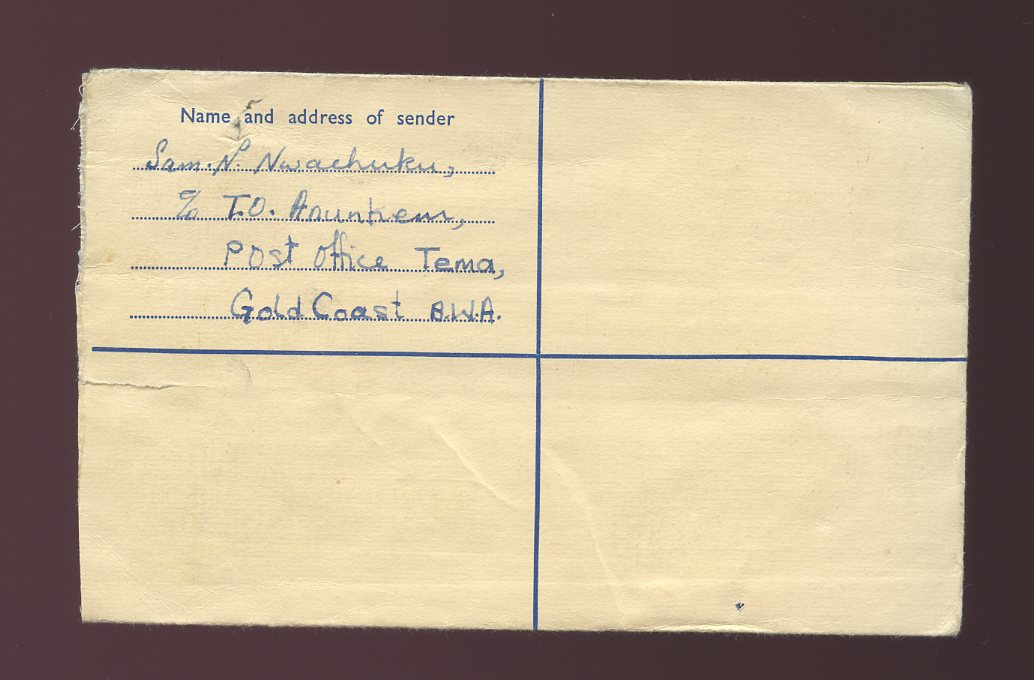 Name and address of sender
Sam. N. Nwachuku,
c/o T.O. Anunkem,
Post Office Tema,
Gold Coast B.W.A.